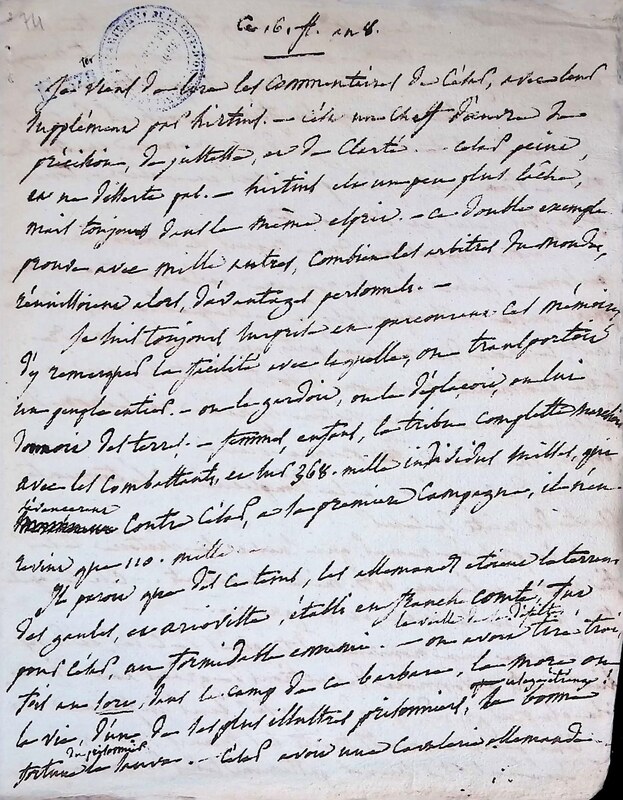 74
Ce 16. fl. an 8.
1er
Je viens de lire les Commentaires de César, avec leur
supplément par hirtius. — C'est un chef d'œuvre de
précision, de justesse, et de clarté. — César peint,
et ne disserte pas. — hirtius est un peu plus lâche,
mais toujours dans le même esprit. — ce double exemple
prouve avec mille autres, combien les arbitres du monde,
réunissoient alors, d'avantages personnels. —
Je suis toujours surpris en parcourant ces mémoires,
d'y remarquer la facilité avec laquelle, on transportoit
un peuple entier. — on le gardoit, on le déplaçoit, on lui
donnoit des terres. — femmes, enfans, la tribu complette marchoit
avec les combattants, et sur 368. mille individus suisses, qui
s'avancerent
contre César, à sa premiere campagne, il n'en
revint que 110. mille. —
Il paroit que dès ce tems, les allemands etoient la terreur
des gaules, et arioviste, établi en franche comté, fut
pour César, un formidable ennemi. — on avoit tiré trois
fois au sort, dans le camp de ce barbare, la mort ou
la vie, d'un de ses plus illustres prisonniers, la bonne
fortune du prisonnier le sauva. — César avoit une cavalerie allemande